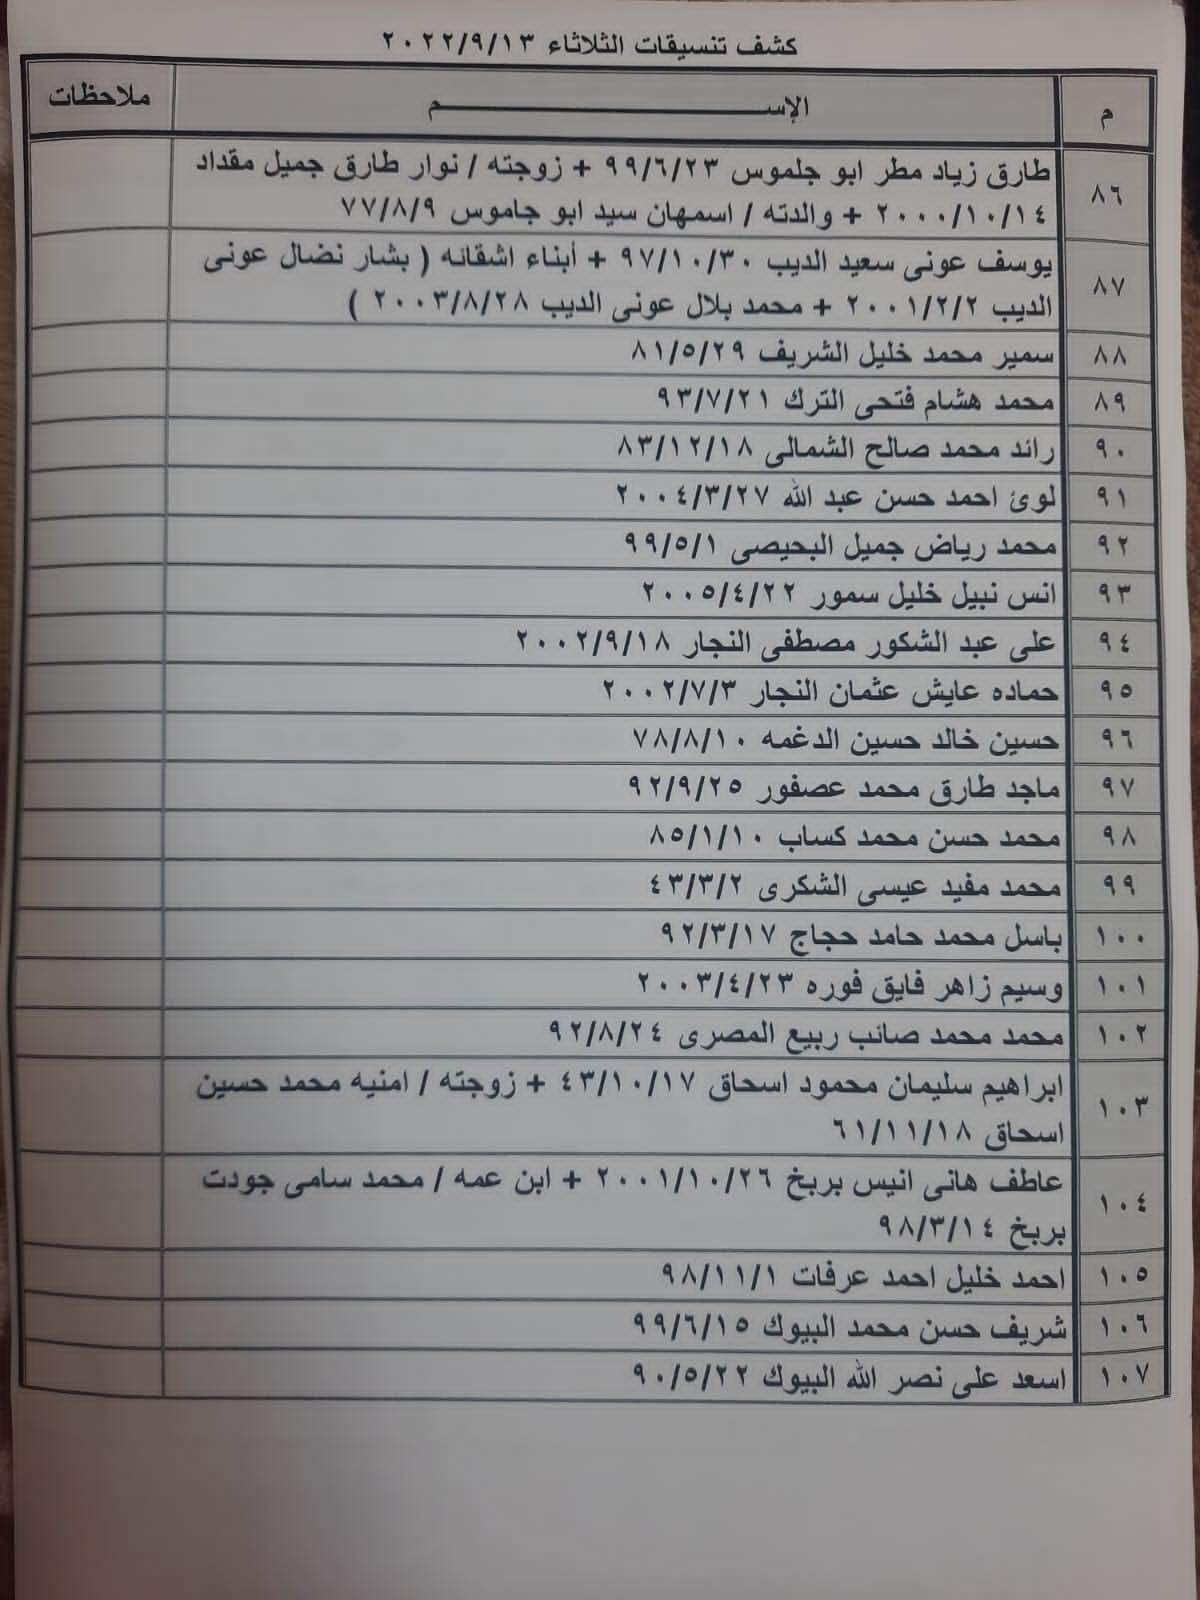 كشف تنسيقات الثلاثاء ٢٠٢٢/٩/١٣
م الإســــم ملاحظات
٨٦ طارق زياد مطر ابو جلموس ٩٩/٦/٢٣ + زوجته / نوار طارق جميل مقداد
٢٠٠٠/١٠/١٤ + والدته / اسمهان سيد ابو جاموس ٧٧/٨/٩
٨٧ يوسف عونى سعيد الديب ٩٧/١٠/٣٠ + أبناء اشقائه ( بشار نضال عونى
الديب ٢٠٠١/٢/٢ + محمد بلال عونى الديب ٢٠٠٣/٨/٢٨ )
٨٨ سمير محمد خليل الشريف ٨١/٥/٢٩
٨٩ محمد هشام فتحى الترك ٩٣/٧/٢١
٩٠ رائد محمد صالح الشمالى ٨٣/١٢/١٨
٩١ لوئ احمد حسن عبد الله ٢٠٠٤/٣/٢٧
٩٢ محمد رياض جميل البحيصى ٩٩/٥/١
٩٣ انس نبيل خليل سمور ٢٠٠٥/٤/٢٢
٩٤ على عبد الشكور مصطفى النجار ٢٠٠٢/٩/١٨
٩٥ حماده عايش عثمان النجار ٢٠٠٢/٧/٣
٩٦ حسين خالد حسين الدغمه ٧٨/٨/١٠
٩٧ ماجد طارق محمد عصفور ٩٢/٩/٢٥
٩٨ محمد حسن محمد كساب ٨٥/١/١٠
٩٩ محمد مفيد عيسى الشكرى ٤٣/٣/٢
١٠٠ باسل محمد حامد حجاج ٩٢/٣/١٧
١٠١ وسيم زاهر فايق فوره ٢٠٠٣/٤/٢٣
١٠٢ محمد محمد صائب ربيع المصرى ٩٢/٨/٢٤
١٠٣ ابراهيم سليمان محمود اسحاق ٤٣/١٠/١٧ + زوجته / امنيه محمد حسين
اسحاق ٦١/١١/١٨
١٠٤ عاطف هانى انيس بربخ ٢٠٠١/١٠/٢٦ + ابن عمه / محمد سامى جودت
بربخ ٩٨/٣/١٤
١٠٥ احمد خليل احمد عرفات ٩٨/١١/١
١٠٦ شريف حسن محمد البيوك ٩٩/٦/١٥
١٠٧ اسعد على نصر الله البيوك ٩٠/٥/٢٢